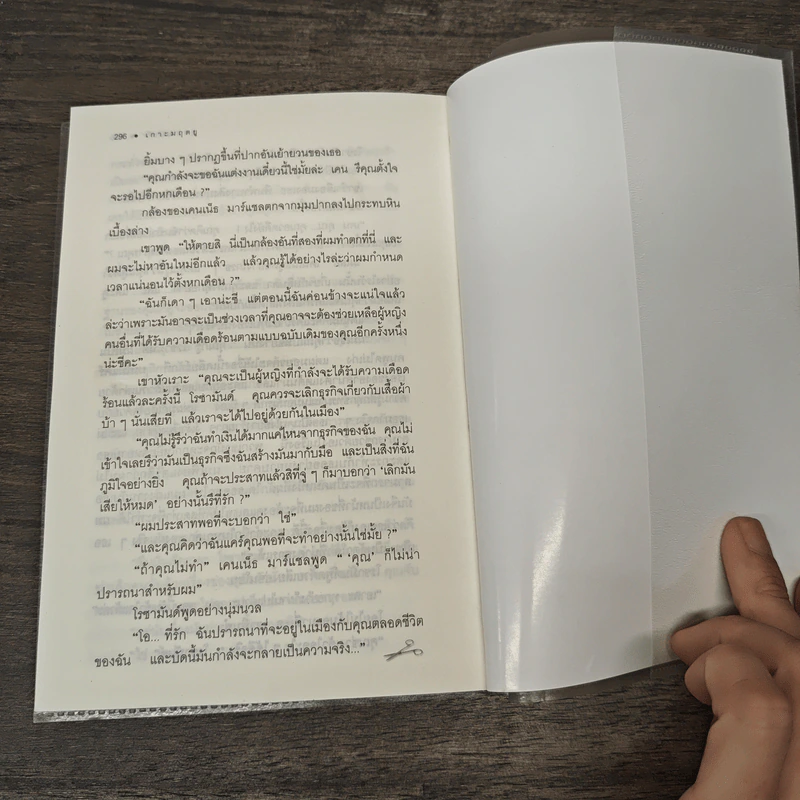 296 • เกาะมฤตยู
ยิ้มบาง ๆ ปรากฏขึ้นที่ปากอันเย้ายวนของเธอ
“คุณกำลังจะขอฉันแต่งงานเดี๋ยวนี้ใช่มั้ยล่ะ เคน รึคุณตั้งใจ
จะรอไปอีกหกเดือน ?”
กล้องของเคนเน็ธ มาร์แชลตกจากมุมปากลงไปกระทบหิน
เบื้องล่าง
เขาพูด “ให้ตายสิ นี่เป็นกล้องอันที่สองที่ผมทำตกที่นี่ และ
ผมจะไม่หาอันใหม่อีกแล้ว แล้วคุณรู้ได้อย่างไรล่ะว่าผมกำหนด
เวลาแน่นอนไว้ตั้งหกเดือน ?”
“ฉันก็เดา ๆ เอาน่ะซี แต่ตอนนี้ฉันค่อนข้างจะแน่ใจแล้ว
ล่ะว่าเพราะมันอาจจะเป็นช่วงเวลาที่คุณอาจจะต้องช่วยเหลือผู้หญิง
คนอื่นที่ได้รับความเดือดร้อนตามแบบฉบับเดิมของคุณอีกครั้งหนึ่ง
น่ะซีคะ”
เขาหัวเราะ “คุณจะเป็นผู้หญิงที่กำลังจะได้รับความเดือด
ร้อนแล้วละครั้งนี้ โรซามันด์ คุณควรจะเลิกธุรกิจเกี่ยวกับเสื้อผ้า
บ้า ๆ นั่นเสียที แล้วเราจะได้ไปอยู่ด้วยกันในเมือง”
“คุณไม่รู้รึว่าฉันทำเงินได้มากแค่ไหนจากธุรกิจของฉัน คุณไม่
เข้าใจเลยรึว่ามันเป็นธุรกิจซึ่งฉันสร้างมันมากับมือ และเป็นสิ่งที่ฉัน
ภูมิใจอย่างยิ่ง คุณถ้าจะประสาทแล้วสิที่จู่ ๆ ก็มาบอกว่า ‘เลิกมัน
เสียให้หมด’ อย่างนั้นรึที่รัก ?”
“ผมประสาทพอที่จะบอกว่า ใช่”
“และคุณคิดว่าฉันแคร์คุณพอที่จะทำอย่างนั้นใช่มั้ย ?”
“ถ้าคุณไม่ทำ” เคนเน็ธ มาร์แชลพูด “ ‘คุณ’ ก็ไม่น่า
ปรารถนาสำหรับผม”
โรซามันด์พูดอย่างนุ่มนวล
“โอ... ที่รัก ฉันปรารถนาที่จะอยู่ในเมืองกับคุณตลอดชีวิต
ของฉัน และบัดนี้มันกำลังจะกลายเป็นความจริง...”